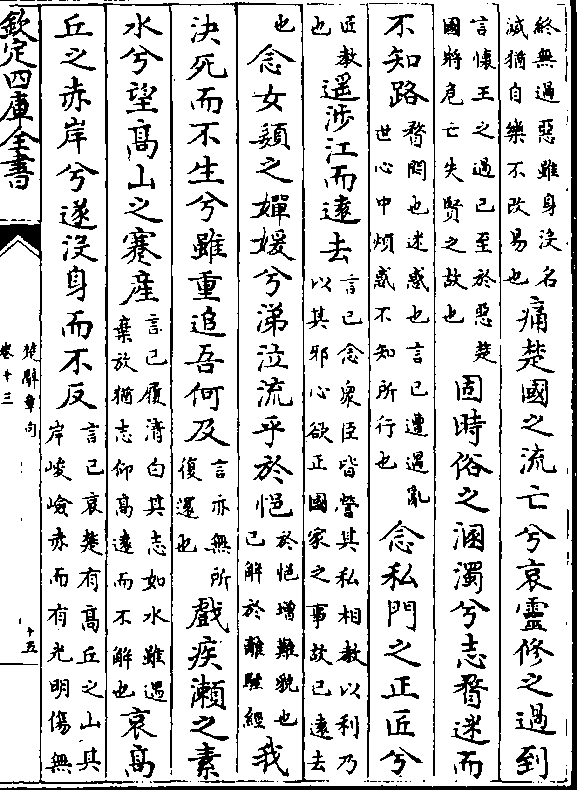 終無過惡雖身沒名滅猶自樂不改易也痛楚國之流亡兮哀靈修之過到
言懷王之過已至於惡楚國將危亡失賢之故也固時俗之溷濁兮志瞀迷而
不知路瞀悶也迷惑也言已遭遇亂世心中煩惑不知所行也念私門之正匠兮
匠教也遥涉江而遠去言已念衆臣皆營其私相教以利乃以其邪心欲正國家之事故已遠去
也念女嬃之嬋媛兮涕泣流乎於悒於悒增難貌也已解於離騷經我
決死而不生兮雖重追吾何及言亦無所復還也戲疾瀨之素
水兮望髙山之蹇産言已履清白其志如水雖遇棄放猶志仰髙遠而不解也哀髙
丘之赤岸兮遂沒身而不反言已哀楚有髙丘之山其岸峻嶮赤而有光明傷無
欽定四庫全書
楚辭章句
卷十三
十五